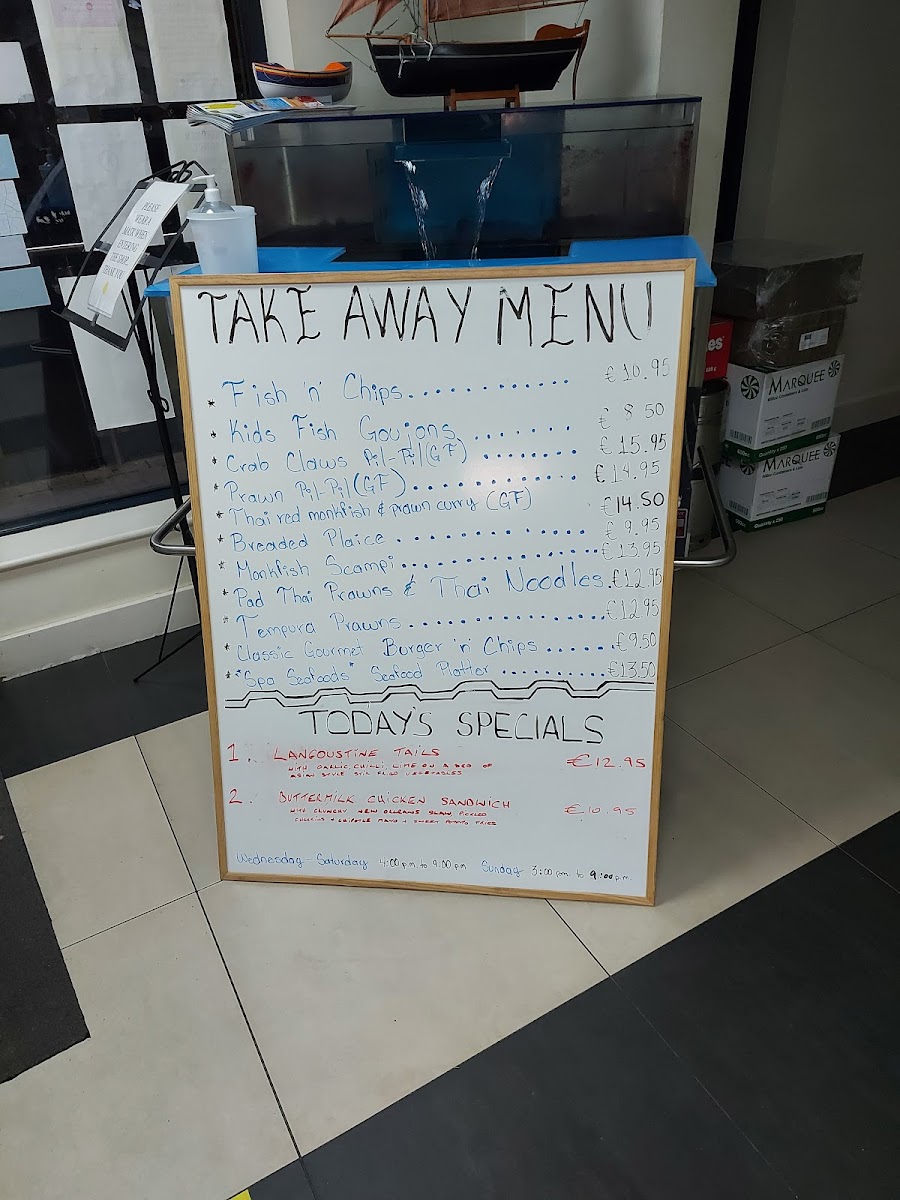 PLEASE
WEAR A
MASK WHEN
ENTERING
THE SHOP.
THANK YOU
TAKE AWAY MENU
* Fish 'n' Chips............ €10.95
* Kids Fish Goujons ....... € 8.50
* Crab Claws Pil-Pil (GF) ........ €15.95
* Prawn Pil-Pil (GF)............. €14.95
* Thai red monkfish & prawn curry (GF) €14.50
* Breaded Plaice ............. € 9.95
* Monkfish Scampi ................ €13.95
* Pad Thai Prawns & Thai Noodles. €12.95
* Tempura Prawns................ €12.95
* Classic Gourmet Burger 'n' Chips ...... €9.50
* "Spa Seafoods" Seafood Platter .......... €13.50
TODAY'S SPECIALS
1. LANGOUSTINE TAILS €12.95
WITH GARLIC, CHILLI, LIME ON A BED OF
ASIAN STYLE STIR FRIED VEGETABLES
2. BUTTERMILK CHICKEN SANDWICH €10.95
WITH CRUNCHY NEW ORLEANS SLAW, PICKLED
+ CHIPOTLE MAYO + SWEET POTATO FRIES
Wednesday - Saturday 4:00 p.m. to 9:00 p.m Sunday 3:00 p.m. to 9:00 p.m.
MARQUEE
MARQUEE